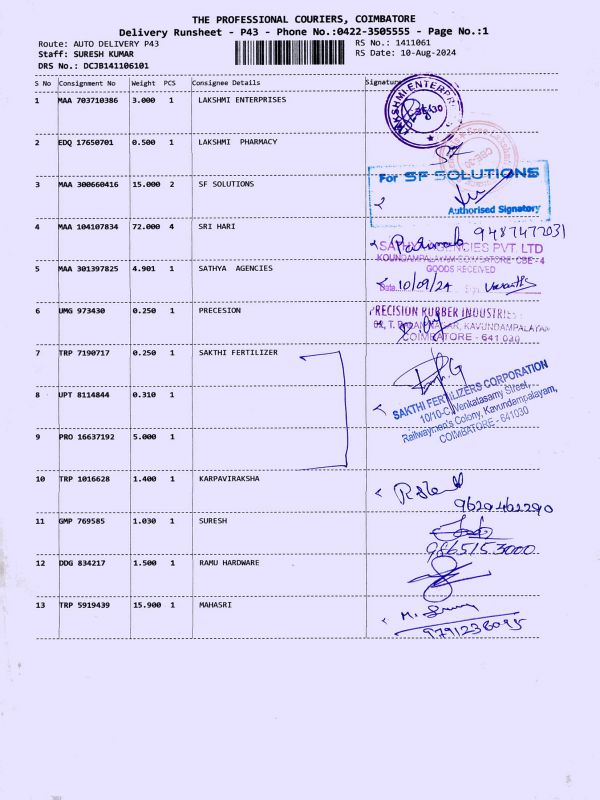 THE PROFESSIONAL COURIERS, COIMBATORE
Delivery Runsheet - P43 - Phone No.:0422-3505555 - Page No.:1
Route: AUTO DELIVERY P43
RS No.: 1411061
Staff: SURESH KUMAR
RS Date: 10-Aug-2024
DRS No.: DCJB141106101
S No Consignment No Weight PCS Consignee Details Signature
1 MAA 703710386 3.000 1 LAKSHMI ENTERPRISES
2 EDQ 17650701 0.500 1 LAKSHMI PHARMACY
CBE-30
3 MAA 300660416 15.000 2 SF SOLUTIONS
For SF SOLUTIONS
Authorised Signatory
4 MAA 104107834 72.000 4 SRI HARI
9487477031
SATHYA AGENCIES PVT. LTD
KOUNDAMPALAYAM COIMBATORE CBE-4
5 MAA 301397825 4.901 1 SATHYA AGENCIES
GOODS RECEIVED
Date 10/09/24 Sign
6 UMG 973430 0.250 1 PRECESION
PRECISION RUBBER INDUSTRIES
NAGAR, KAVUNDAMPALAYAM
COIMBATORE - 641 030
7 TRP 7190717 0.250 1 SAKTHI FERTILIZER
8 UPT 8114844 0.310 1
SAKTHI FERTILIZERS CORPORATION
10/10-C, Venkatasamy Street,
Railwaymen's Colony, Kavundampalayam,
COIMBATORE - 641030
9 PRO 16637192 5.000 1
10 TRP 1016628 1.400 1 KARPAVIRAKSHA
9629462290
11 GMP 769585 1.030 1 SURESH
9865153000
12 DDG 834217 1.500 1 RAMU HARDWARE
13 TRP 5919439 15.900 1 MAHASRI
9791238095